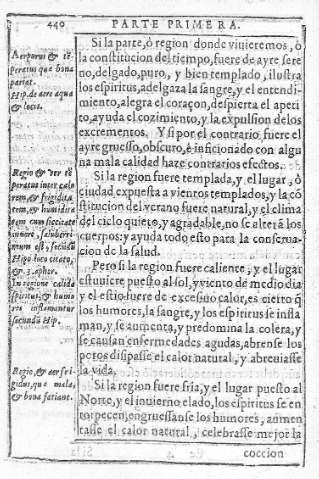 440 PARTE PRIMERA.
Si la parte, ò region donde viuieremos, ò
la constitucion del tiempo, fuere de ayre sere
no, delgado, puro, y bien templado, ilustra
los espiritus, adelgaza la sangre, y el entendi-
miento, alegra el coraçon, despierta el apeti
to, ayuda el cozimiento, y la expulsion de los
excrementos. Y si por el contrario fuere el
ayre gruesso, obscuro, è inficionado con algu
na mala calidad haze contrarios efectos.
Si la region fuere templada, y el lugar, ò
ciudad expuesta a vientos templados, y la cõ
stitucion del verano fuere natural, y el clima
del ciclo quieto, y agradable, no se alterá los
cuerpos: y ayuda todo esto para la conserua-
cion de la salud.
Pero si la region fuere caliente, y el lugar
estuuiere puesto al sol, y viento de medio dia
y el estio fuere de excessiuo calor, es cierto q̃
los humores, la sangre, y los espiritus se infla
man, y se aumenta, y predomina la colera, y
se causan enfermedades agudas, abrense los
poros dissipase el calor natural, y abreuiasse
la vida.
Si la region fuere fria, y el lugar puesto al
Norte, y el inuierno elado, los espiritus se en
torpecen, engruessanse los humores, aumen
tasse el calor natural, celebrasse mejor la
coccion
Aer purus & tẽ
peratus que bona
pariat.
Hip. de aere aqua
& locis.
Regio & ver tẽ
peratus inter calo
rem, & frigidita
tem, & humidita
tem cum siccitate
saluberri-
mum est, secũdũ
Hip. loco citato,
& 3. aphor.
In regione calida
spiritus, & humo
res inflamantur
secundũ Hip.
Regio, & aer fri
gidus, que mala,
& bona faciant.